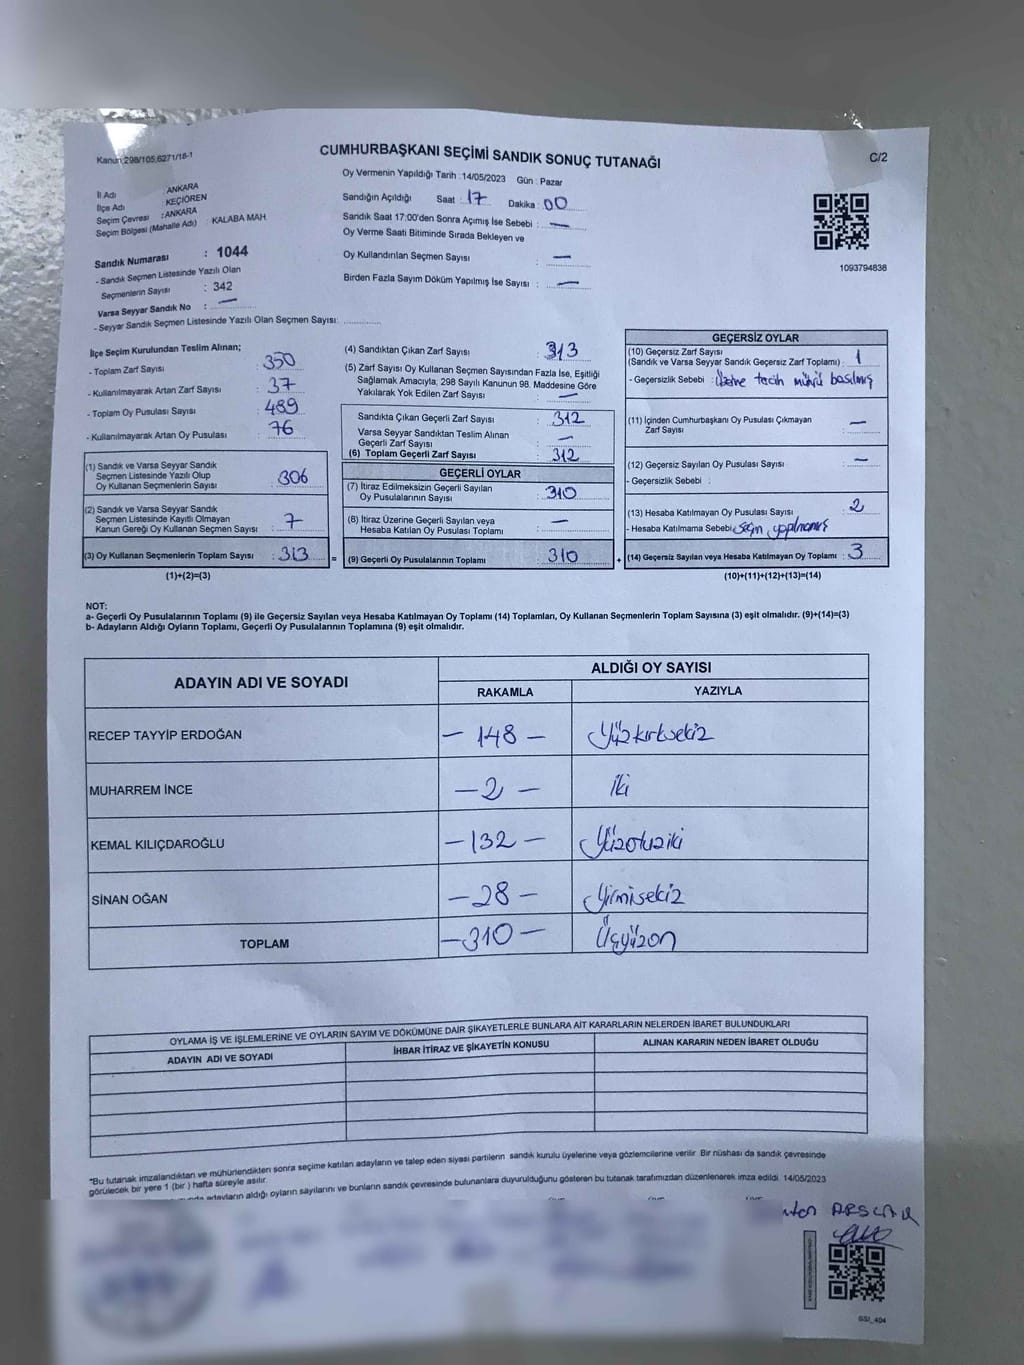 Kanun 298/105,6271/18-1
CUMHURBAŞKANI SEÇİMİ SANDIK SONUÇ TUTANAĞI
C/2
Oy Vermenin Yapıldığı Tarih : 14/05/2023 Gün : Pazar
İl Adı : ANKARA
İlçe Adı : KEÇİÖREN
Seçim Çevresi : ANKARA
Seçim Bölgesi (Mahalle Adı) KALABA MAH.
Sandığın Açıldığı Saat : 17 Dakika : 00
Sandık Saat 17:00'den Sonra Açımış İse Sebebi : —
Oy Verme Saati Bitiminde Sırada Bekleyen ve
Oy Kullandırılan Seçmen Sayısı —
Birden Fazla Sayım Döküm Yapılmış İse Sayısı : —
1093794838
Sandık Numarası : 1044
- Sandık Seçmen Listesinde Yazılı Olan
Seçmenlerin Sayısı : 342
Varsa Seyyar Sandık No : —
- Seyyar Sandık Seçmen Listesinde Yazılı Olan Seçmen Sayısı:
İlçe Seçim Kurulundan Teslim Alınan;
- Toplam Zarf Sayısı : 350
- Kullanılmayarak Artan Zarf Sayısı : 37
- Toplam Oy Pusulası Sayısı : 489
- Kullanılmayarak Artan Oy Pusulası : 76
(1) Sandık ve Varsa Seyyar Sandık
Seçmen Listesinde Yazılı Olup
Oy Kullanan Seçmenlerin Sayısı : 306
(2) Sandık ve Varsa Seyyar Sandık
Seçmen Listesinde Kayıtlı Olmayan
Kanun Gereği Oy Kullanan Seçmen Sayısı : 7
(3) Oy Kullanan Seçmenlerin Toplam Sayısı : 313 =
(1)+(2)=(3)
(4) Sandıktan Çıkan Zarf Sayısı : 313
(5) Zarf Sayısı Oy Kullanan Seçmen Sayısından Fazla İse, Eşitliği
Sağlamak Amacıyla, 298 Sayılı Kanunun 98. Maddesine Göre
Yakılarak Yok Edilen Zarf Sayısı : —
Sandıkta Çıkan Geçerli Zarf Sayısı : 312
Varsa Seyyar Sandıktan Teslim Alınan
Geçerli Zarf Sayısı : —
(6) Toplam Geçerli Zarf Sayısı : 312
GEÇERLİ OYLAR
(7) İtiraz Edilmeksizin Geçerli Sayılan
Oy Pusulalarının Sayısı : 310
(8) İtiraz Üzerine Geçerli Sayılan veya
Hesaba Katılan Oy Pusulası Toplamı : —
(9) Gecerli Oy Pusulalarının Toplamı : 310 +
GEÇERSİZ OYLAR
(10) Geçersiz Zarf Sayısı
(Sandık ve Varsa Seyyar Sandık Geçersiz Zarf Toplamı) : 1
- Geçersizlik Sebebi : Üzerine tercih mührü basılmış
(11) İçinden Cumhurbaşkanı Oy Pusulası Çıkmayan
Zarf Sayısı : —
(12) Geçersiz Sayılan Oy Pusulası Sayısı : —
- Geçersizlik Sebebi :
(13) Hesaba Katılmayan Oy Pusulası Sayısı : 2
- Hesaba Katılmama Sebebi : Seçim yapılmamış
(14) Geçersiz Sayılan veya Hesaba Katılmayan Oy Toplamı : 3
(10)+(11)+(12)+(13)=(14)
NOT:
a- Geçerli Oy Pusulalarının Toplamı (9) ile Geçersiz Sayılan veya Hesaba Katılmayan Oy Toplamı (14) Toplamları, Oy Kullanan Seçmenlerin Toplam Sayısına (3) eşit olmalıdır. (9)+(14)=(3)
b- Adayların Aldığı Oyların Toplamı, Geçerli Oy Pusulalarının Toplamına (9) eşit olmalıdır.
ADAYIN ADI VE SOYADI
ALDIĞI OY SAYISI
RAKAMLA YAZIYLA
RECEP TAYYİP ERDOĞAN — 148 — Yüzkırksekiz
MUHARREM İNCE — 2 — İki
KEMAL KILIÇDAROĞLU — 132 — Yüzotuziki
SİNAN OĞAN — 28 — Yirmisekiz
TOPLAM — 310 — Üçyüzon
OYLAMA İŞ VE İŞLEMLERİNE VE OYLARIN SAYIM VE DÖKÜMÜNE DAİR ŞİKAYETLERLE BUNLARA AİT KARARLARIN NELERDEN İBARET BULUNDUKLARI
ADAYIN ADI VE SOYADI İHBAR İTİRAZ VE ŞİKAYETİN KONUSU ALINAN KARARIN NEDEN İBARET OLDUĞU
*Bu tutanak imzalandıktan ve mühürlendikten sonra seçime katılan adayların ve talep eden siyasi partilerin sandık kurulu üyelerine veya gözlemcilerine verilir. Bir nüshası da sandık çevresinde
görülecek bir yere 1 (bir ) hafta süreyle asılır.
adayların aldığı oyların sayılarını ve bunların sandık çevresinde bulunanlara duyurulduğunu gösteren bu tutanak tarafımızdan düzenlenerek imza edildi. 14/05/2023
GSI_404